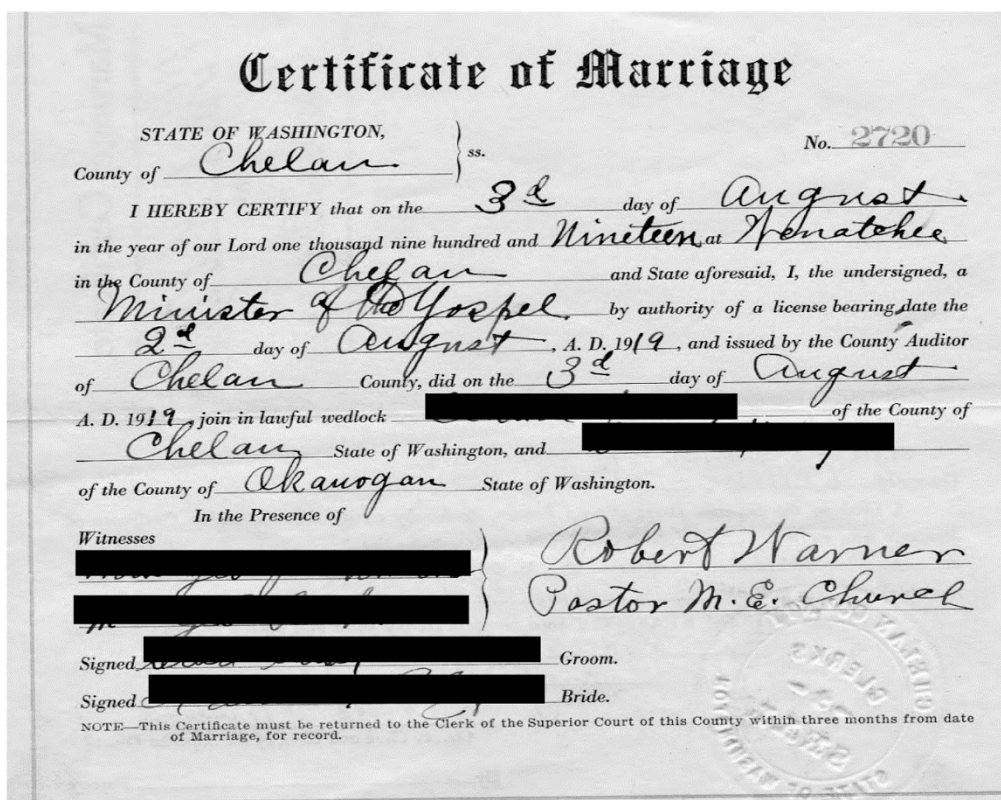 Certificate of Marriage
STATE OF WASHINGTON,
ss.
No. 2720
County of Chelan
I HEREBY CERTIFY that on the 3d day of August
in the year of our Lord one thousand nine hundred and Nineteen at Wenatchee
in the County of Chelan and State aforesaid, I, the undersigned, a
Minister of the Gospel by authority of a license bearing date the
2d day of August, A. D. 1919, and issued by the County Auditor
of Chelan County, did on the 3d day of August
A. D. 1919, join in lawful wedlock of the County of
Chelan State of Washington, and
of the County of Okanogan State of Washington.
In the Presence of
Witnesses
Robert Warner
Pastor M. E. Church
Signed Groom.
Signed Bride.
NOTE—This Certificate must be returned to the Clerk of the Superior Court of this County within three months from date
of Marriage, for record.